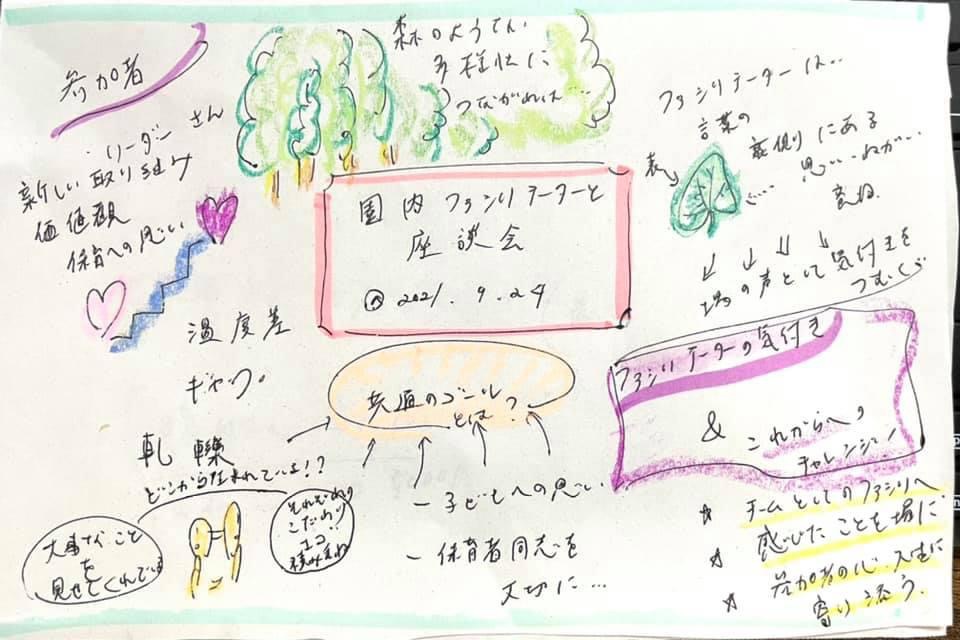 森のようでん
多様性に
つながれば…
参加者
・リーダーさん
新しい取り組み
価値観
保育への思い
温度差
ギャップ。
軋轢
どこから生まれている!?
大事なこと
を
見せてくれている
それぞれの
こだわり
エゴ
国内ファシリテーターと
座談会
2021.9.24
共通のゴール
とは?
- 子どもへの思い
- 保育者同志を
大切に…
ファシリテーターは…
言葉の
表
裏側にある
思い・ねがい…
場の声として気付きを
つむぐ
ファシリテーターの気付き
&
これからへの
チャレンジ
☆ チームとしてのファシリへ
☆ 感じたことを場に
☆ 参加者の心・人生に
寄り添う。